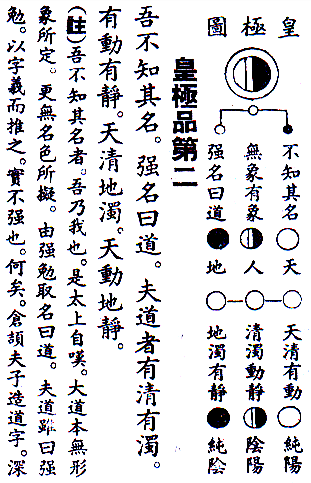 皇極圖
不知其名 天 天清有動 純陽
無象有象 人 清濁動靜 陰陽
强名曰道 地 地濁有靜 純陰
皇極品第二
吾不知其名。强名曰道。夫道者有清有濁。
有動有靜。天清地濁。天動地靜。
(註)吾不知其名者。吾乃我也。是太上自嘆。大道本無形
象所定。更無名色所擬。由强勉取名曰道。夫道雖曰强
勉。以字義而推之。實不强也。何矣。倉頡夫子造道字。深